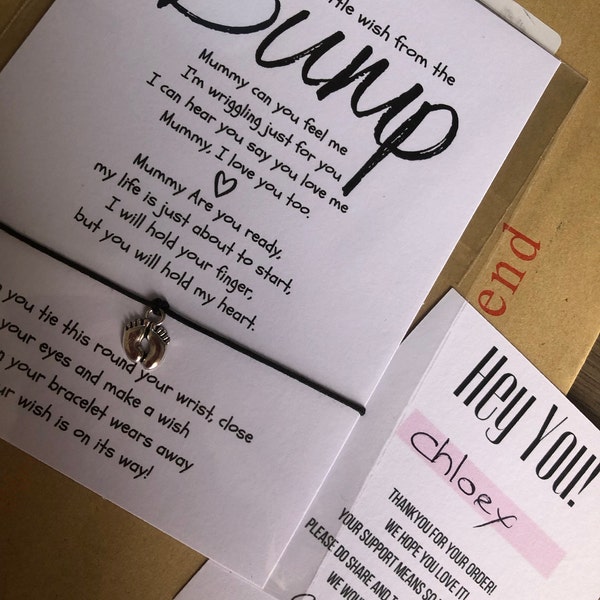 wish from the
Bump
Mummy can you feel me
I'm wriggling just for you
I can hear you say you love me
Mummy, I love you too.
Mummy Are you ready,
my life is just about to start,
I will hold your finger,
but you will hold my heart.
you tie this round your wrist, close
your eyes and make a wish
your bracelet wears away
wish is on its way!
end
Hey You!
Chloey
THANKYOU FOR YOUR ORDER!
WE HOPE YOU LOVE IT!
YOUR SUPPORT MEANS SO
PLEASE DO SHARE AND
WE WOU